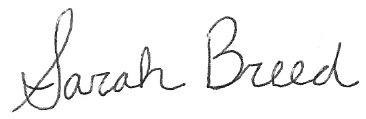 Sarah Breed